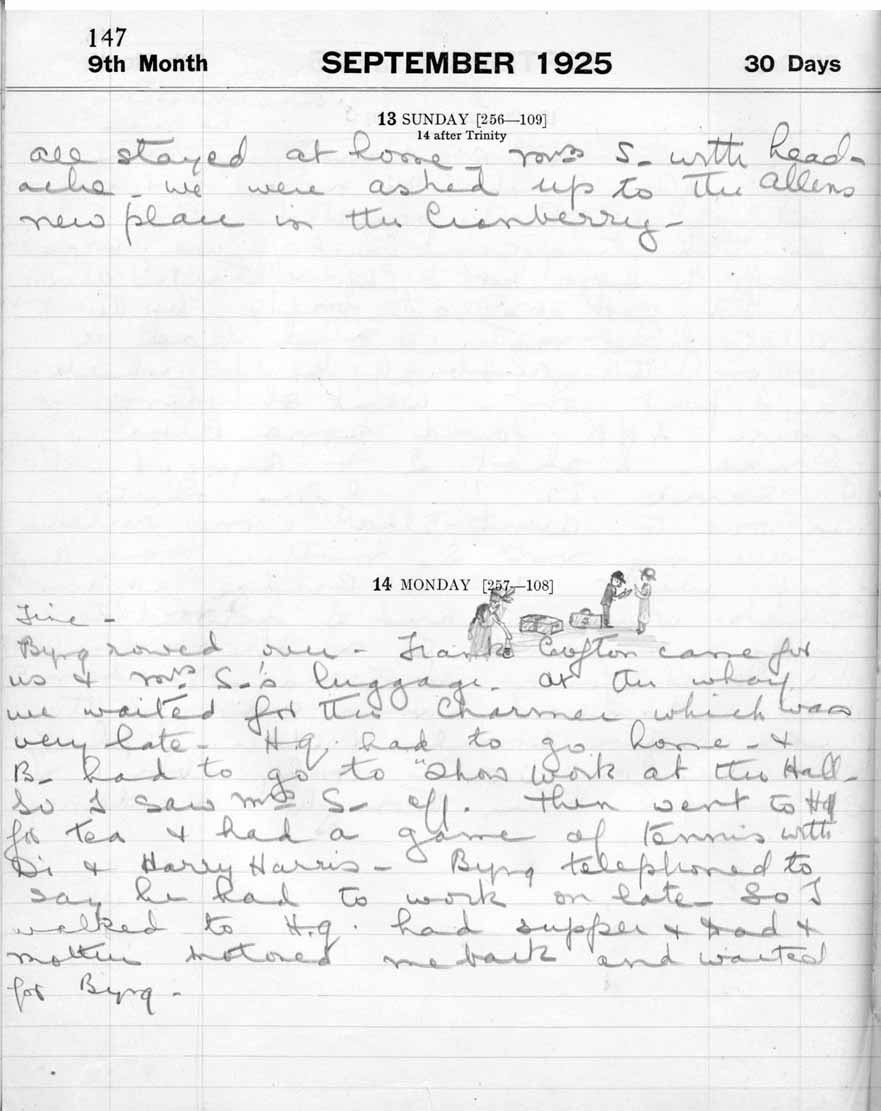 147
9th Month SEPTEMBER 1925 30 Days
13 SUNDAY [256—109]
14 after Trinity
all stayed at home - Mrs S - with head-
ache - we were asked up to the Allens
new place in the Cranberry -
14 MONDAY [257—108]
Fine -
Byng rowed over - Frank Crofton came for
us & Mrs S-'s luggage. at the wharf
we waited for the Charmer which was
very late - H.q. had to go home - &
B - had to go to "Show work at the Hall -
So I saw Mrs S - off. Then went to Hq
for tea & had a game of tennis with
Di & Harry Harris - Byng telephoned to
say he had to work on late - So I
walked to H.q. had supper & Dad &
mother motored me back and waited
for Byng -